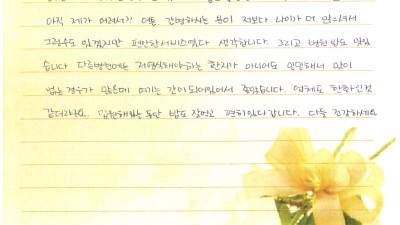 아직 제가 어려서?! 여튼 간병하시는 분이 저보다 나이가 더 많으셔서
그럴수도 있겠지만 편안한서비스였다 생각합니다. 그리고 병원 밥도 맛있
습니다 다른병원에는 저염식해야하는 환자가 아니어도 밍밍해서 맛이
없는 경우가 많은데 여기는 간이 되어있어서 좋았습니다. 영해도 한학인것
같더라구요. 입원해있는 동안 밥도 잘먹고 편히있다갑니다. 다들 건강하세요